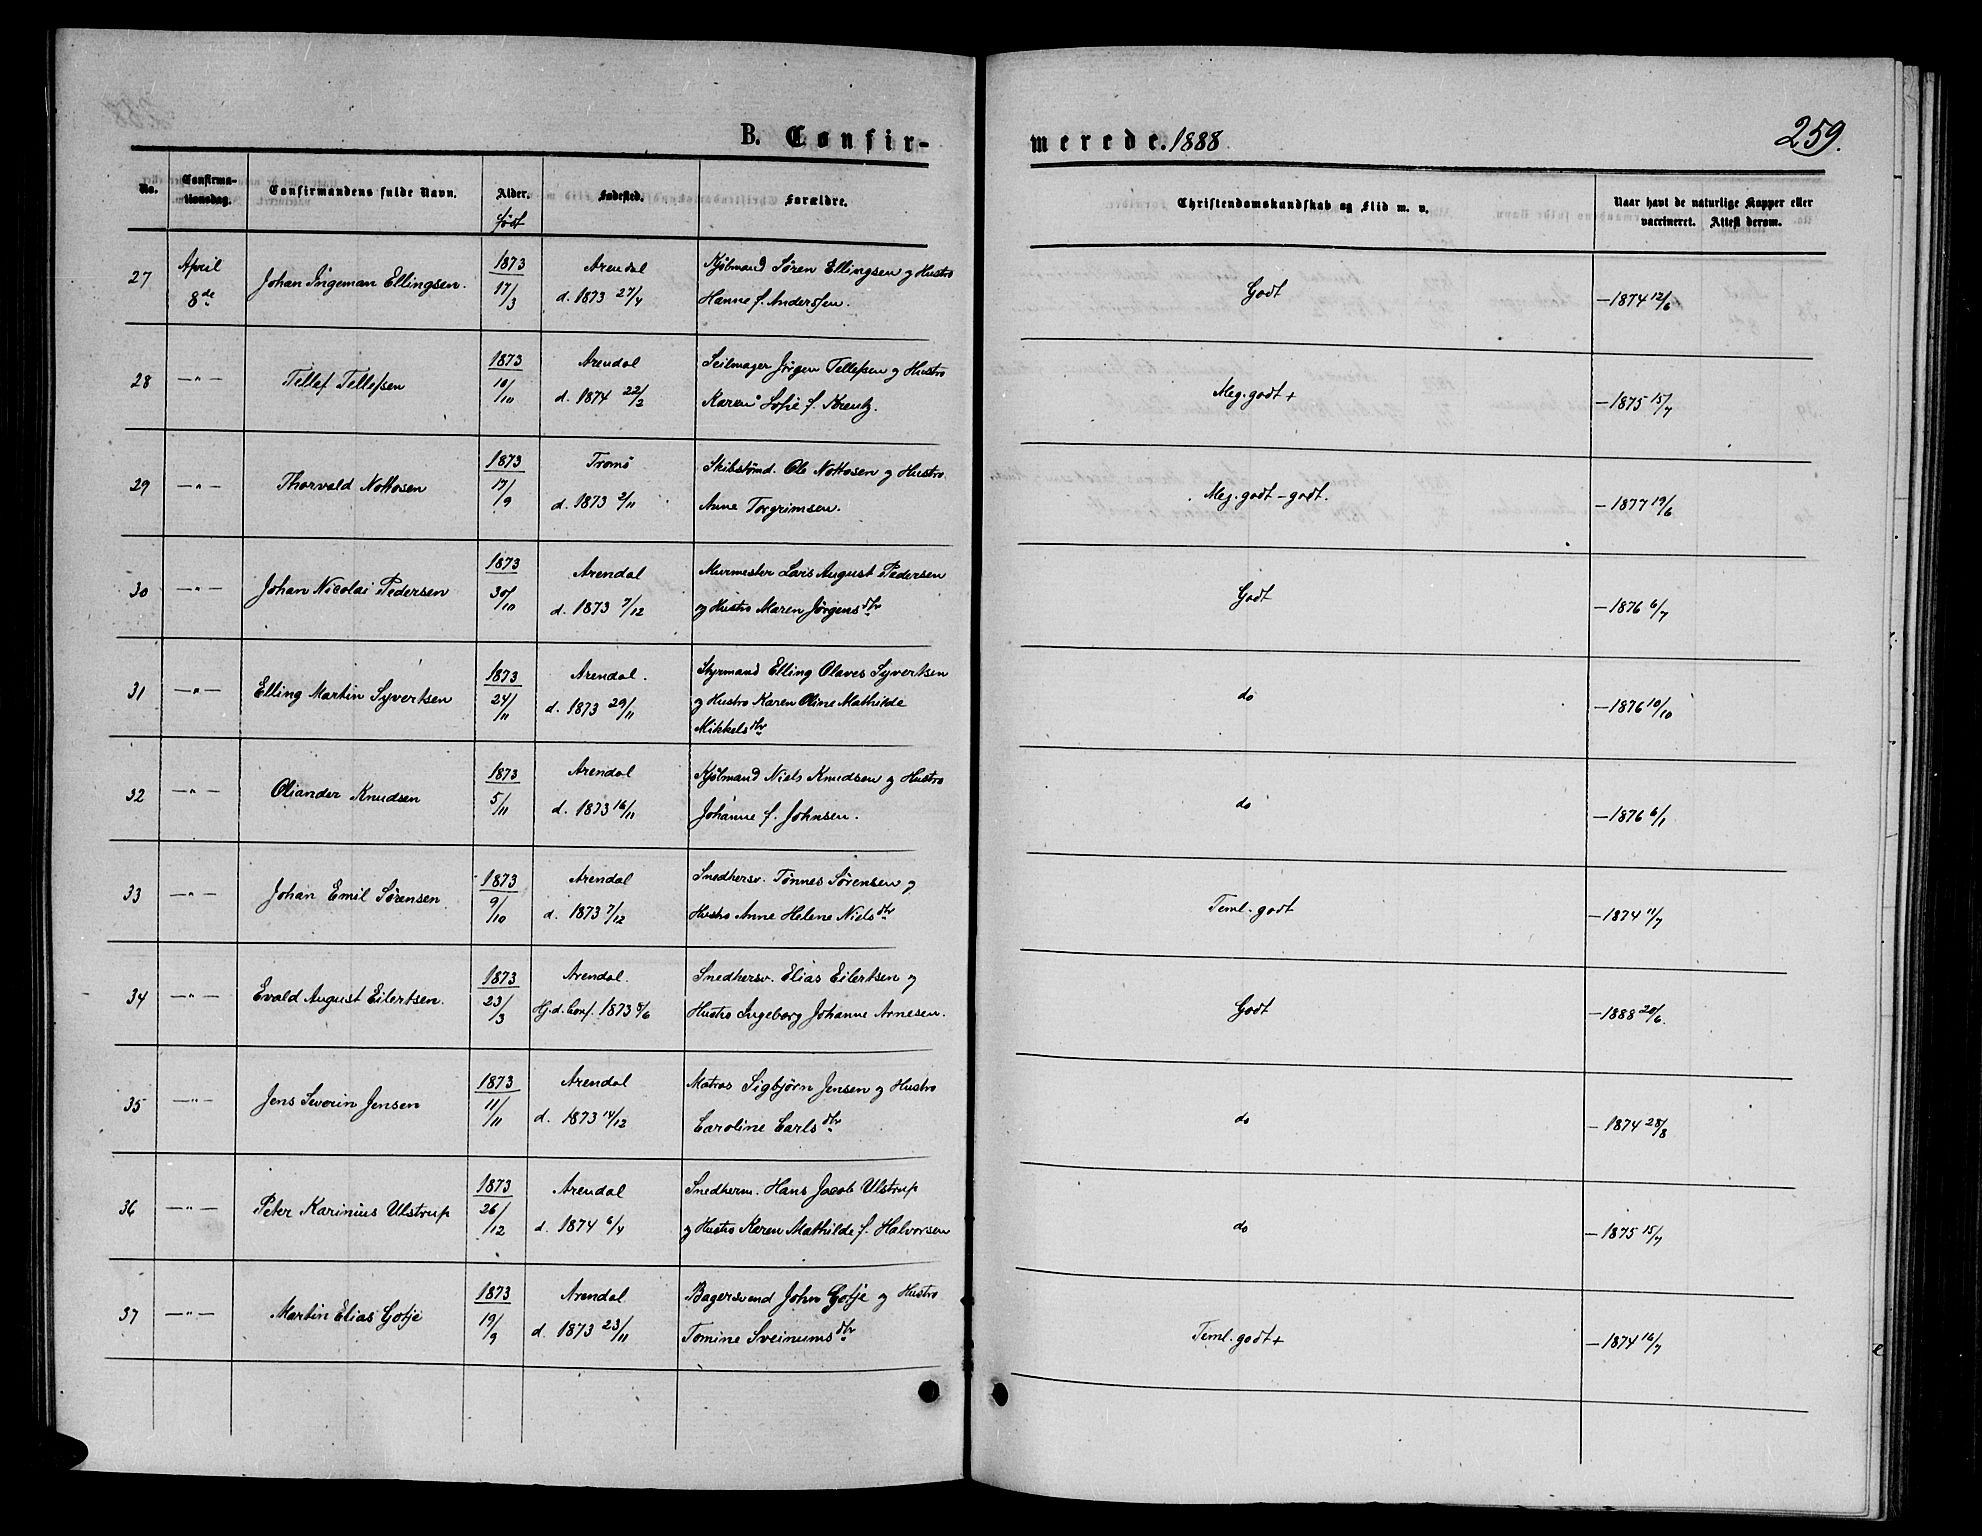 B. Confir-
merede. 1888
259.
No.
Confirma-
tionsdag.
Confirmandens fulde Navn.
Alder.
født
Fødested.
Forældre.
Christendomskundskab og Flid m. v.
Naar havt de naturlige Kopper eller
vaccineret. Attest derom.
27
April
8de
Johan Ingeman Ellingsen.
1873
17/3
Arendal
d. 1873 27/4
Kjølmand Søren Ellingsen og Hustro
Hanne f. Anderssen.
Godt
— 1874 12/6
28
—"—
Tellef Tellefsen
1873
10/10
Arendal
d. 1874 22/2
Seilmager Jørgen Tellefsen og Hustro
Karen Sofie f. Kreutz.
Meg. godt +
— 1875 15/7
29
—"—
Thorvald Nottosen
1873
17/9
Tromø
d. 1873 2/11
Skibstømd. Ole Nottosen og Hustro
Anne Torgrimsen.
Meg. godt – godt.
— 1877 19/6
30
—"—
Johan Nicolai Pedersen
1873
30/10
Arendal
d. 1873 7/12
Murmester Lars August Pedersen
og Hustro Maren Jørgensdtr
Godt
— 1876 6/7
31
—"—
Elling Martin Syvertsen
1873
24/11
Arendal.
d. 1873 29/11
Styrmand Elling Olaves Syvertsen
og Hustro Karen Oline Mathilde
Mikkelsdtr
do
— 1876 10/10
32
—"—
Oliander Knudsen
1873
5/11
Arendal
d. 1873 16/11
Kjølmand Niels Knudsen og Hustro
Johanne f. Johnsen.
do
— 1876 6/1
33
—"—
Johan Emil Sørensen
1873
9/10
Arendal
d. 1873 7/12
Snedkersv. Tønnes Sørensen og
Hustro Anne Helene Nielsdtr
Teml. godt
— 1874 11/7
34
—"—
Evald August Eilertsen.
1873
23/3
Arendal.
Hj. d. Conf. 1873 8/6
Snedkersv. Elias Eilertsen og
Hustro Ingeborg Johanne Arnesen.
Godt
— 1888 20/6.
35
—"—
Jens Severin Jensen
1873
11/11
Arendal
d. 1873 14/12
Matros Sigbjørn Jensen og Hustro
Caroline Carlsdtr
do
— 1874 28/8
36
—"—
Peter Karinius Ulstrup
1873
26/12
Arendal
d. 1874 6/4
Snedkerm. Hans Jacob Ulstrup
og Hustro Karen Mathilde f. Halvorsen
do
— 1875 15/7
37
—"—
Martin Elias Gotje
1873
19/9
Arendal
d. 1873 23/11
Bagersvend John Gotje og Hustro
Tomine Sveinumsdtr
Teml. godt +
— 1874 16/7